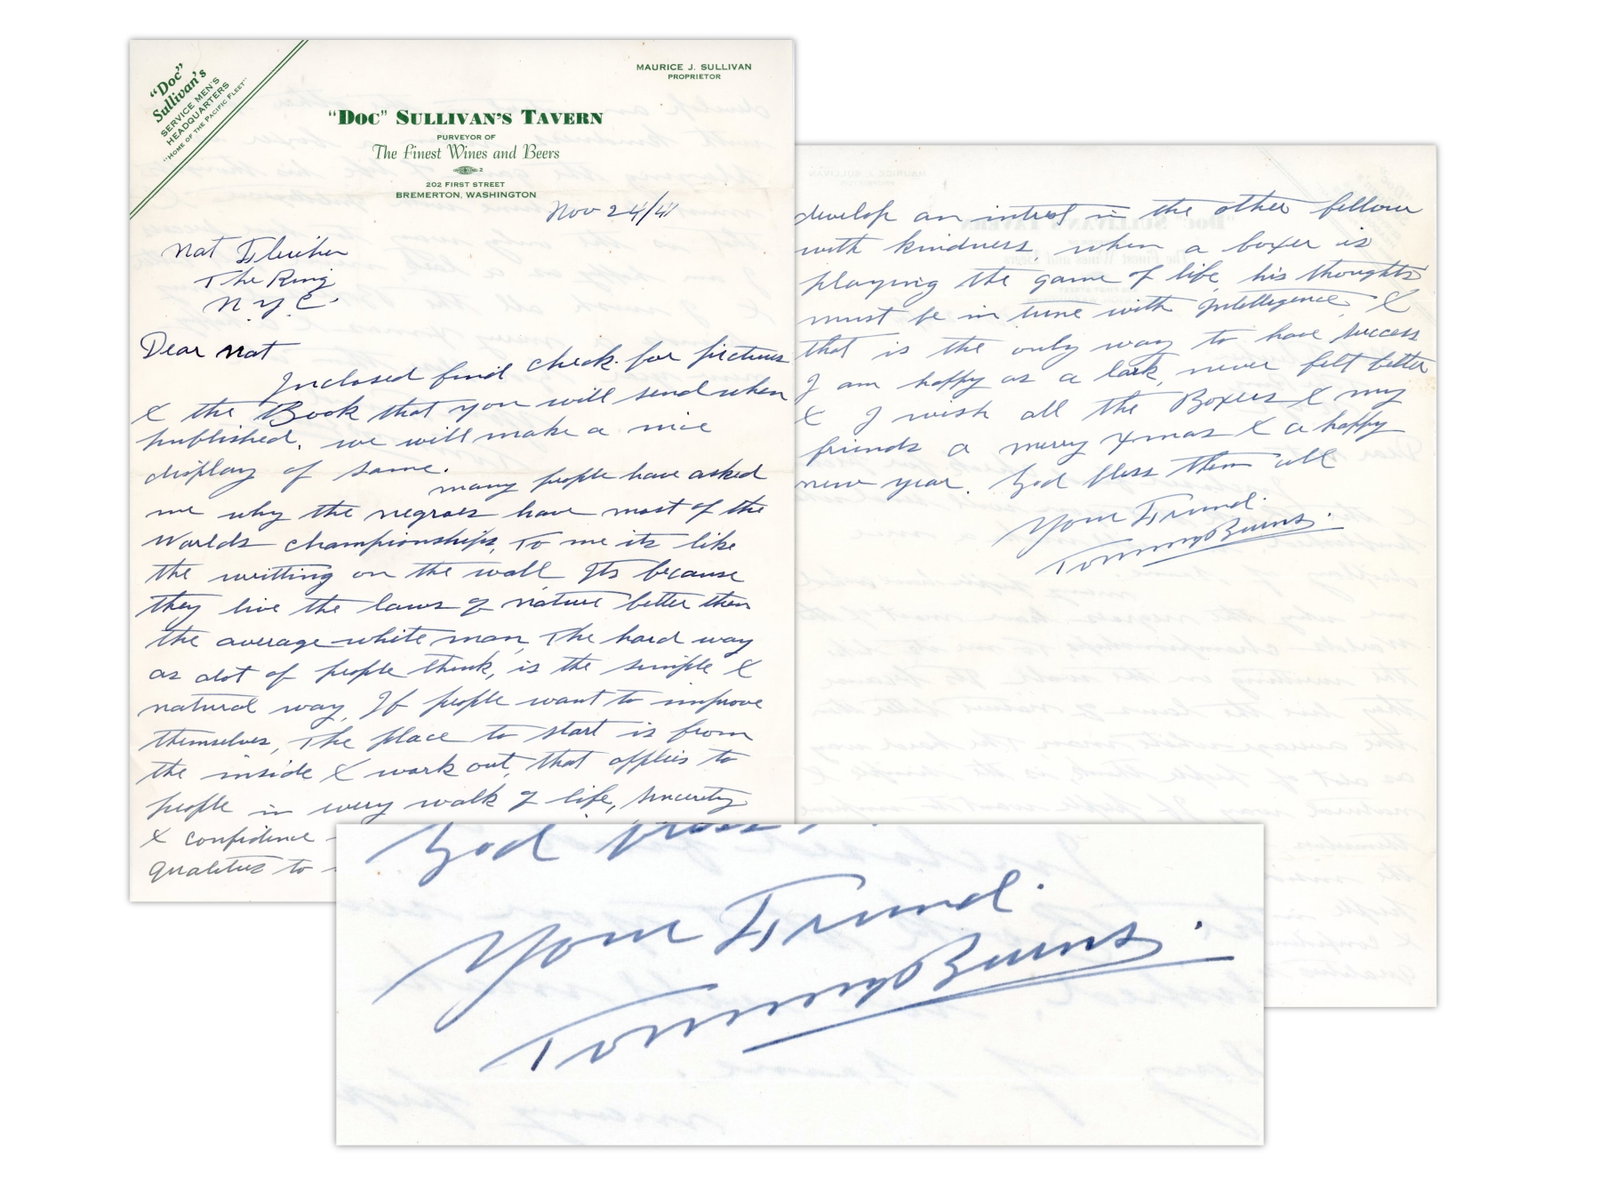 "Doc"
Sullivan's
SERVICE MEN'S
HEADQUARTERS
"HOME OF THE PACIFIC FLEET"
MAURICE J. SULLIVAN
PROPRIETOR
"DOC" SULLIVAN'S TAVERN
PURVEYOR OF
The Finest Wines and Beers
202 FIRST STREET
BREMERTON, WASHINGTON
Nov 24/41
Nat Fleicher
The Ring
N.Y.C.
Dear Nat
Inclosed find check for pictures
& the Book that you will send when
published, we will make a nice
display of same.
many people have asked
me why the negroes have most of the
Worlds championships, To me its like
the writting on the wall Its because
they live the laws of nature better then
the average white man, The hard way
as alot of people think, is the simple &
natural way, If people want to improve
themselves, The place to start is from
the inside & work out, that applies to
people in every walk of life, sincerity
& confidence
qualities to
develop an intrest in the other fellow
with kindness, when a boxer is
playing the game of life, his thoughts
must be in tune with Intellegence, &
that is the only way to have success
I am happy as a lark, never felt better
& I wish all the Boxers & my
friends a merry Xmas & a happy
new year. God bless them all
Your Friend.
Tommy Burns.
God bless
Your Friend.
Tommy Burns.